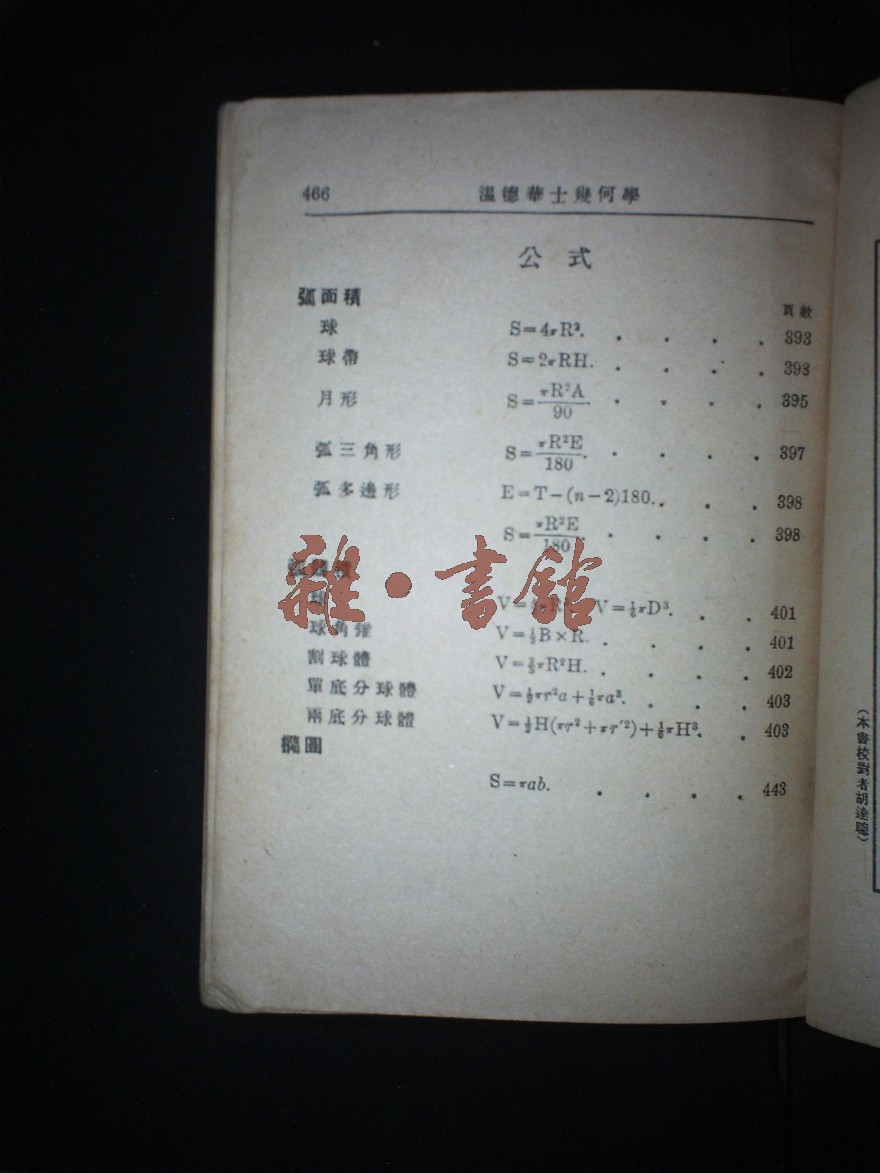 466 溫德華士幾何學
公式
弧面積
頁數
球 S=4πR². . . . . 393
球帶 S=2πRH. . . . . 393
月形 S=πR²A/90. . . . . 395
弧三角形 S=πR²E/180. . . . . 397
弧多邊形 E=T−(n−2)180. . . . 398
S=πR²E/180. . . . . 398
雜·書舘
V=⅙πD³. . . 401
球角錐 V=⅓B×R. . . . . 401
割球體 V=⅔πR²H. . . . . 402
單底分球體 V=½πr²a+⅙πa³. . . . 403
兩底分球體 V=½H(πr²+πr′²)+⅙πH³. . 403
橢圓
S=πab. . . . . 443
(本書校對者胡達聰)